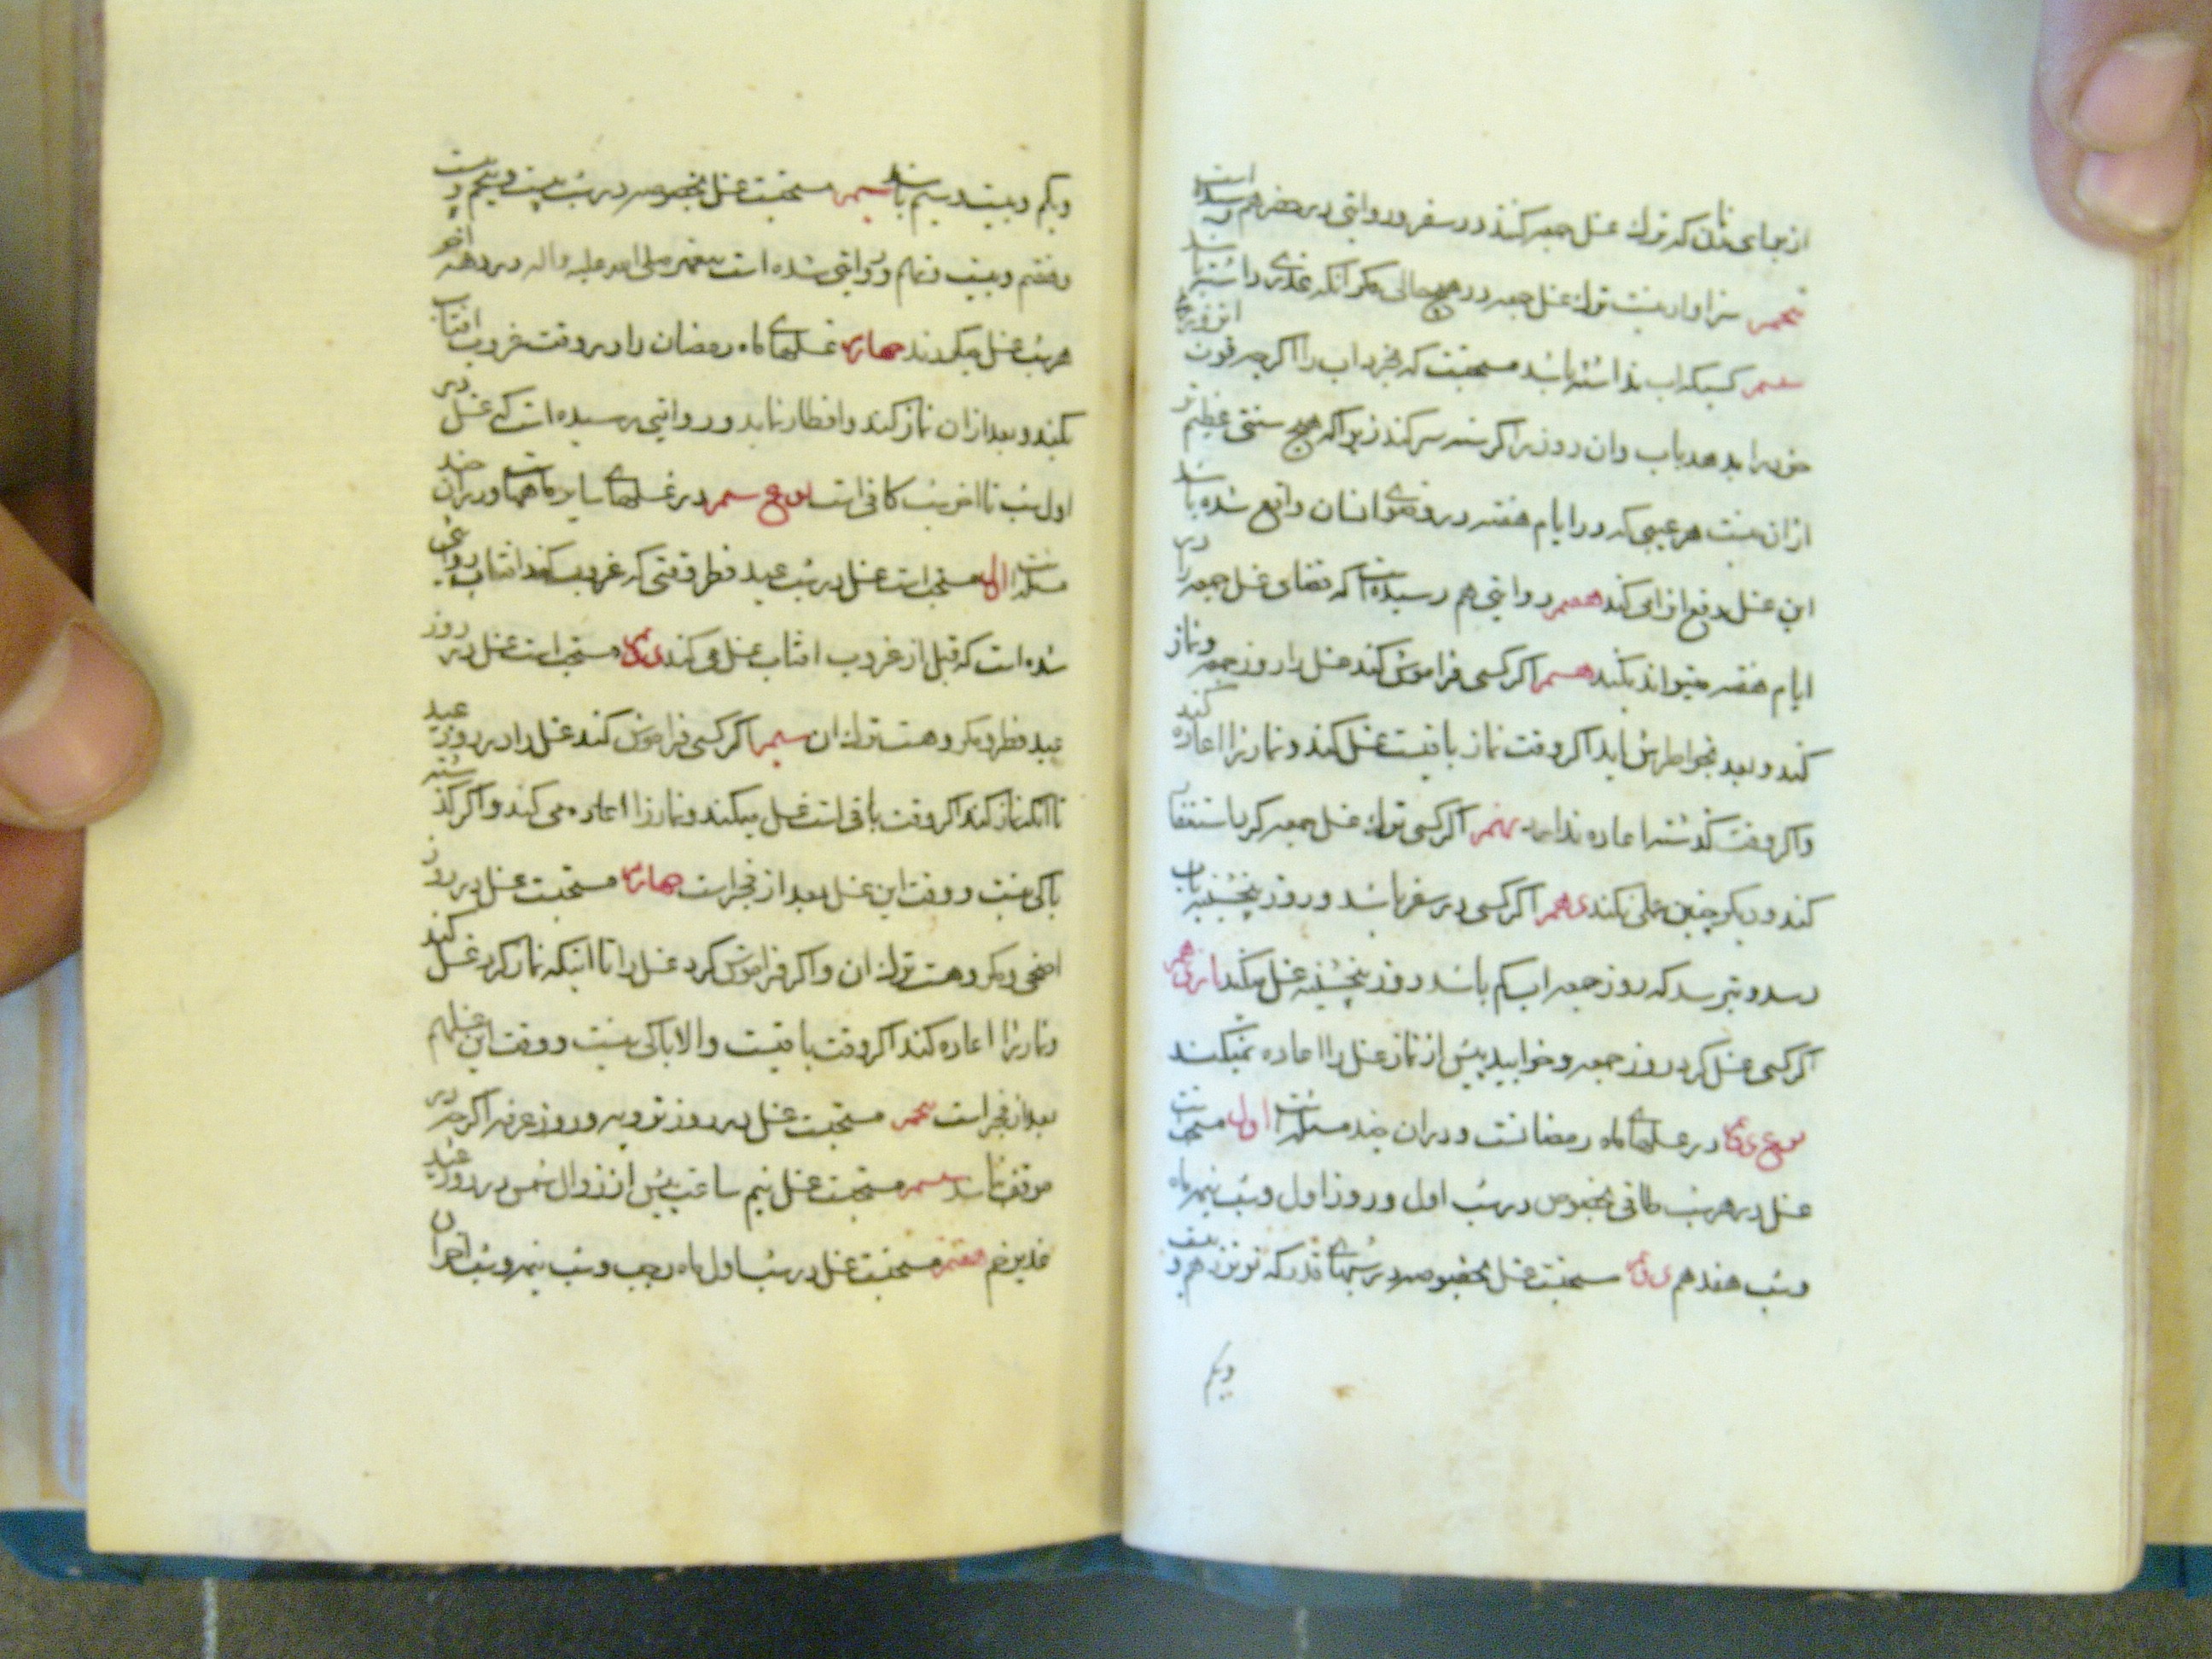 از برای زنان که ترک غسل جمعه کنند در سفر و روایتی در حضر هم رسیده است
پنجم سزاوار نیست ترک غسل جمعه در هیچ حالی مگر آنکه عذری داشته باشد
ششم کسیکه اب نداشته باشد مستحبست که بخرد اب را اگر چه قوت
خود را بدهد باب وان روز را کرسنه سر کند زیرا که هیچ سنتی عظیم تر
از ان نیست هر عیبی که در ایام هفته در وضوی انسان واقع شده باشد
این غسل دفع انرا می کند هفتم روایتی هم رسیده است که قضای غسل جمعه را در
ایام هفته میتواند بکند هشتم اگر کسی فراموش کند غسل را روز جمعه و نماز
کند و بعد بخواطرش اید اگر وقت نماز باقیست غسل کند و نماز را اعاده کند
واگر وقت گذشته اعاده ندارد نهم اگر کسی ترک غسل جمعه کرد استغفار
کند و دیگر چنین عملی نکند دهم اگر کسی در سفر باشد و روز پنجشنبه باب
رسد و بترسد که روز جمعه اب کم باشد روز پنجشنبه غسل میکند یازدهم
اگر کسی غسل کرد روز جمعه و خوابید پیش از نماز غسل را اعاده نمیکند
نوع دویم در غسلهای ماه رمضانست و در ان چند مسئله است اول مستحبست
غسل در هر شب طاقی بخصوص در شب اول و روز اول و شب نیمه ماه
وشب هفدهم دویم مستحبست غسل بخصوصه در شبهای قدر که نوزدهم و بیست
ویکم
ویکم و بیست و سیم باشد سیم مستحبست غسل بخصوصه در شب بیست و پنجم و بیست
وهفتم و بیست و نهم و روایتی شده است پیغمبر صلی الله علیه و اله در دهه اخر
هر شب غسل میکردند چهارم غسلهای ماه رمضان را در وقت غروب افتاب
بکند و بعد از ان نماز کند و افطار نماید و روایتی رسیده است که غسل در
اول شب تا اخر شب کافی است نوع سیم در غسلهای سایر ماهها و در ان چند
مسئله است اول مستحب است غسل در شب عید فطر وقتی که غروب کند افتاب و روایتی
شده است که قبل از غروب افتاب غسل می کند دویم مستحب است غسل در روز
عید فطر و مکروهست ترک ان سیم اگر کسی فراموش کند غسل را در روز عید
تا انکه نماز کند اگر وقت باقی است غسل میکند و نماز را اعاده می کند و اگر گذشته
باکی نیست و وقت این غسل بعد از فجر است چهارم مستحبست غسل در روز
اضحی و مکروهست ترک ان و اگر فراموش کرد غسل را تا اینکه نماز کرد غسل کند
ونماز را اعاده کند اگر وقت باقیست والا باکی نیست و وقت این غسل هم
بعد از فجر است پنجم مستحبست غسل در روز ترویه و روز عرفه اگر چه در
موقف نباشد ششم مستحبست غسل نیم ساعت پیش از زوال شمس در روز عید
غدیر خم هفتم مستحبست غسل در شب اول ماه رجب و شب نیمه و شب اخر ان